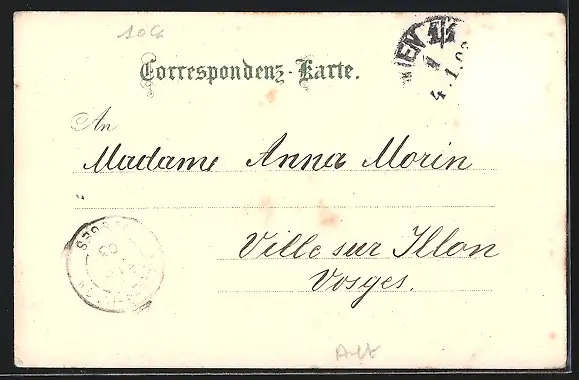 Correspondenz-Karte.
WIEN 1/1
4.1.0
An
Madame Anna Morin
Ville sur Illon
Vosges.
VOSGES
03